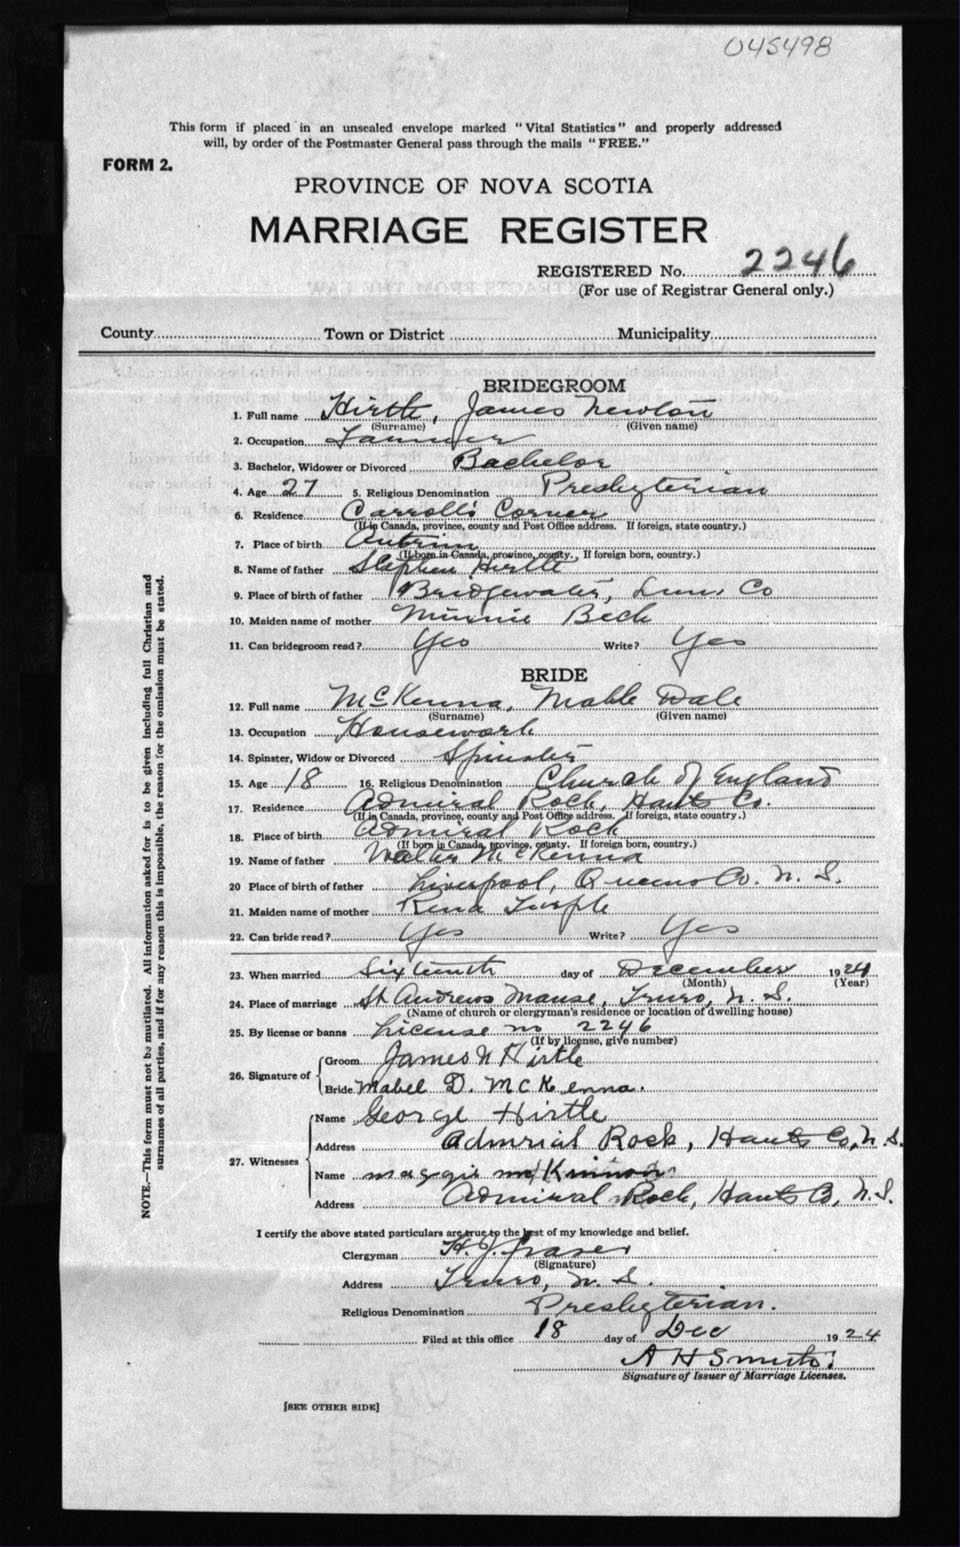 045498
This form if placed in an unsealed envelope marked "Vital Statistics" and properly addressed
will, by order of the Postmaster General pass through the mails "FREE."
FORM 2.
PROVINCE OF NOVA SCOTIA
MARRIAGE REGISTER
REGISTERED No. 2246
(For use of Registrar General only.)
County Town or District Municipality
BRIDEGROOM
1. Full name Hirtle, James Newton
(Surname) (Given name)
2. Occupation
3. Bachelor, Widower or Divorced Bachelor
4. Age 27 5. Religious Denomination Presbyterian
6. Residence Carroll's Corner
(If in Canada, province, county and Post Office address. If foreign, state country.)
7. Place of birth Antrim
(If born in Canada, province, county. If foreign born, country.)
8. Name of father Stephen Hirtle
9. Place of birth of father Bridgewater, Lun. Co
10. Maiden name of mother Minnie Beck
11. Can bridegroom read? Yes Write? Yes
BRIDE
12. Full name McKenna, Mable Dale
(Surname) (Given name)
13. Occupation Housework
14. Spinster, Widow or Divorced Spinster
15. Age 18 16. Religious Denomination Church of England
17. Residence Admiral Rock, Hants Co.
(If in Canada, province, county and Post Office address. If foreign, state country.)
18. Place of birth Admiral Rock
(If born in Canada, province, county. If foreign born, country.)
19. Name of father Walter McKenna
20 Place of birth of father Liverpool, Queens Co. N. S.
21. Maiden name of mother Rena
22. Can bride read? Yes Write? Yes
23. When married Sixteenth day of December 1924
(Month) (Year)
24. Place of marriage St. Andrews Manse, Truro, N. S.
(Name of church or clergyman's residence or location of dwelling house)
25. By license or banns License no 2246
(If by license, give number)
26. Signature of
Groom James N Hirtle
Bride Mabel D. McKenna.
27. Witnesses
Name George Hirtle
Address Admrial Rock, Hants Co, N. S.
Name Maggie
Address Admiral Rock, Hants Co, N. S.
I certify the above stated particulars are true to the best of my knowledge and belief.
Clergyman H. J. Fraser
(Signature)
Address Truro, N. S.
Religious Denomination Presbyterian.
Filed at this office 18 day of Dec 1924
A H
Signature of Issuer of Marriage Licenses.
[SEE OTHER SIDE]
NOTE.—This form must not be mutilated. All information asked for is to be given including full Christian and
surnames of all parties, and if for any reason this is impossible, the reason for the omission must be stated.